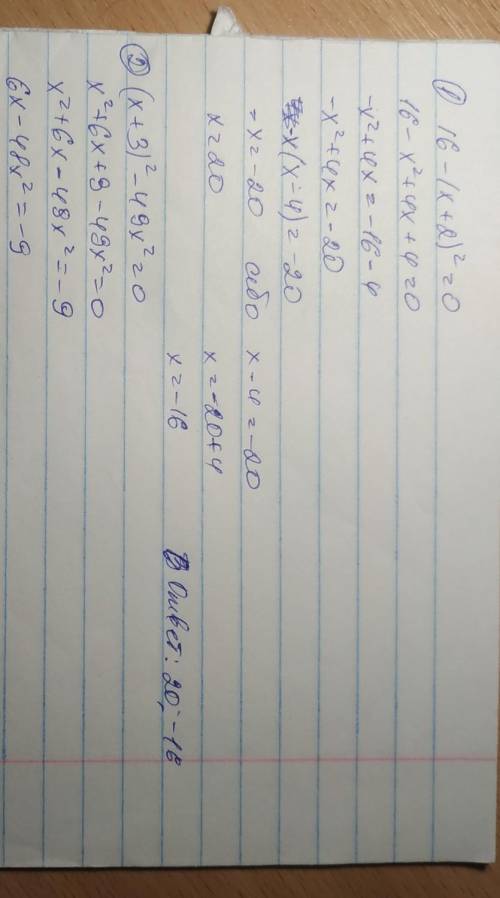 ① 16 - (x + 2)² = 0
16 - x² + 4x + 4 = 0
-x² + 4x = -16 - 4
-x² + 4x = -20
-x(x - 4) = -20
-x = -20 або x - 4 = -20
x = 20 x = -20 + 4
x = -16 Ответ: 20; -16
② (x + 3)² - 49x² = 0
x² + 6x + 9 - 49x² = 0
x² + 6x - 49x² = -9
6x - 48x² = -9